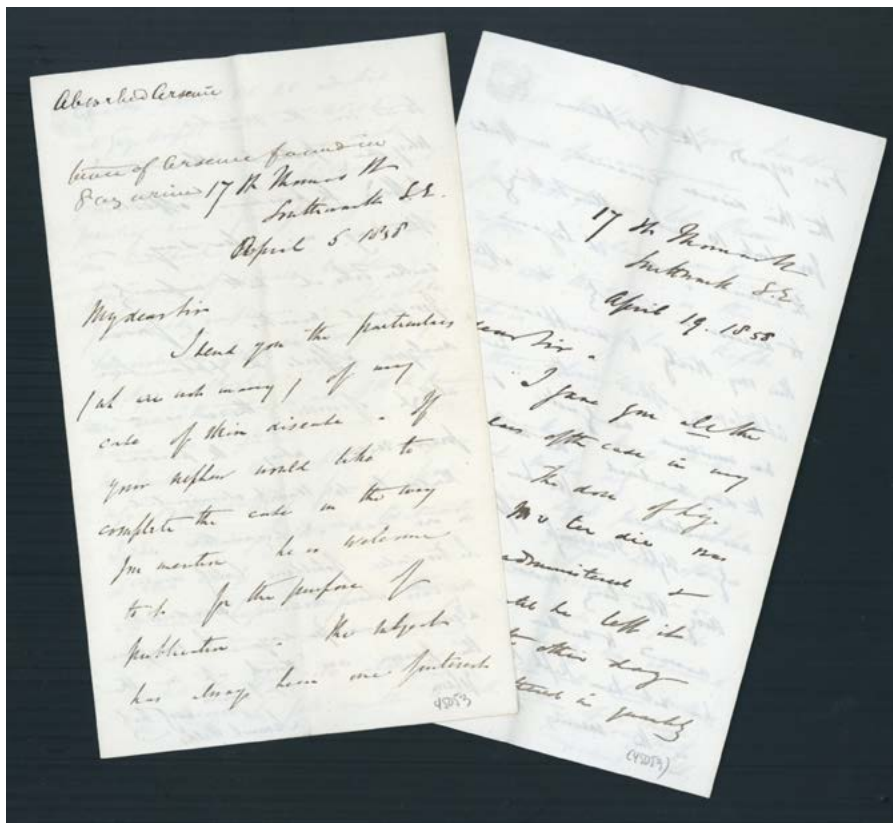 Absorbed Arsenic
of Arsenic found in
urine
17 St Thomas St
Southwark S.E.
April 5 1858
My dear Sir
I send you the particulars
(wh are not many) of my
case of skin disease. If
your nephew would like to
complete the case in the way
you mention he is welcome
to it for the purpose of
publication. The subject
has always been one
45053
17 St Thomas St
Southwark S.E.
April 19. 1858
dear Sir.
I gave you all the
of the case in my
The dose of Liq.
ter die was
administered &
he left it
this day
in
(45053)